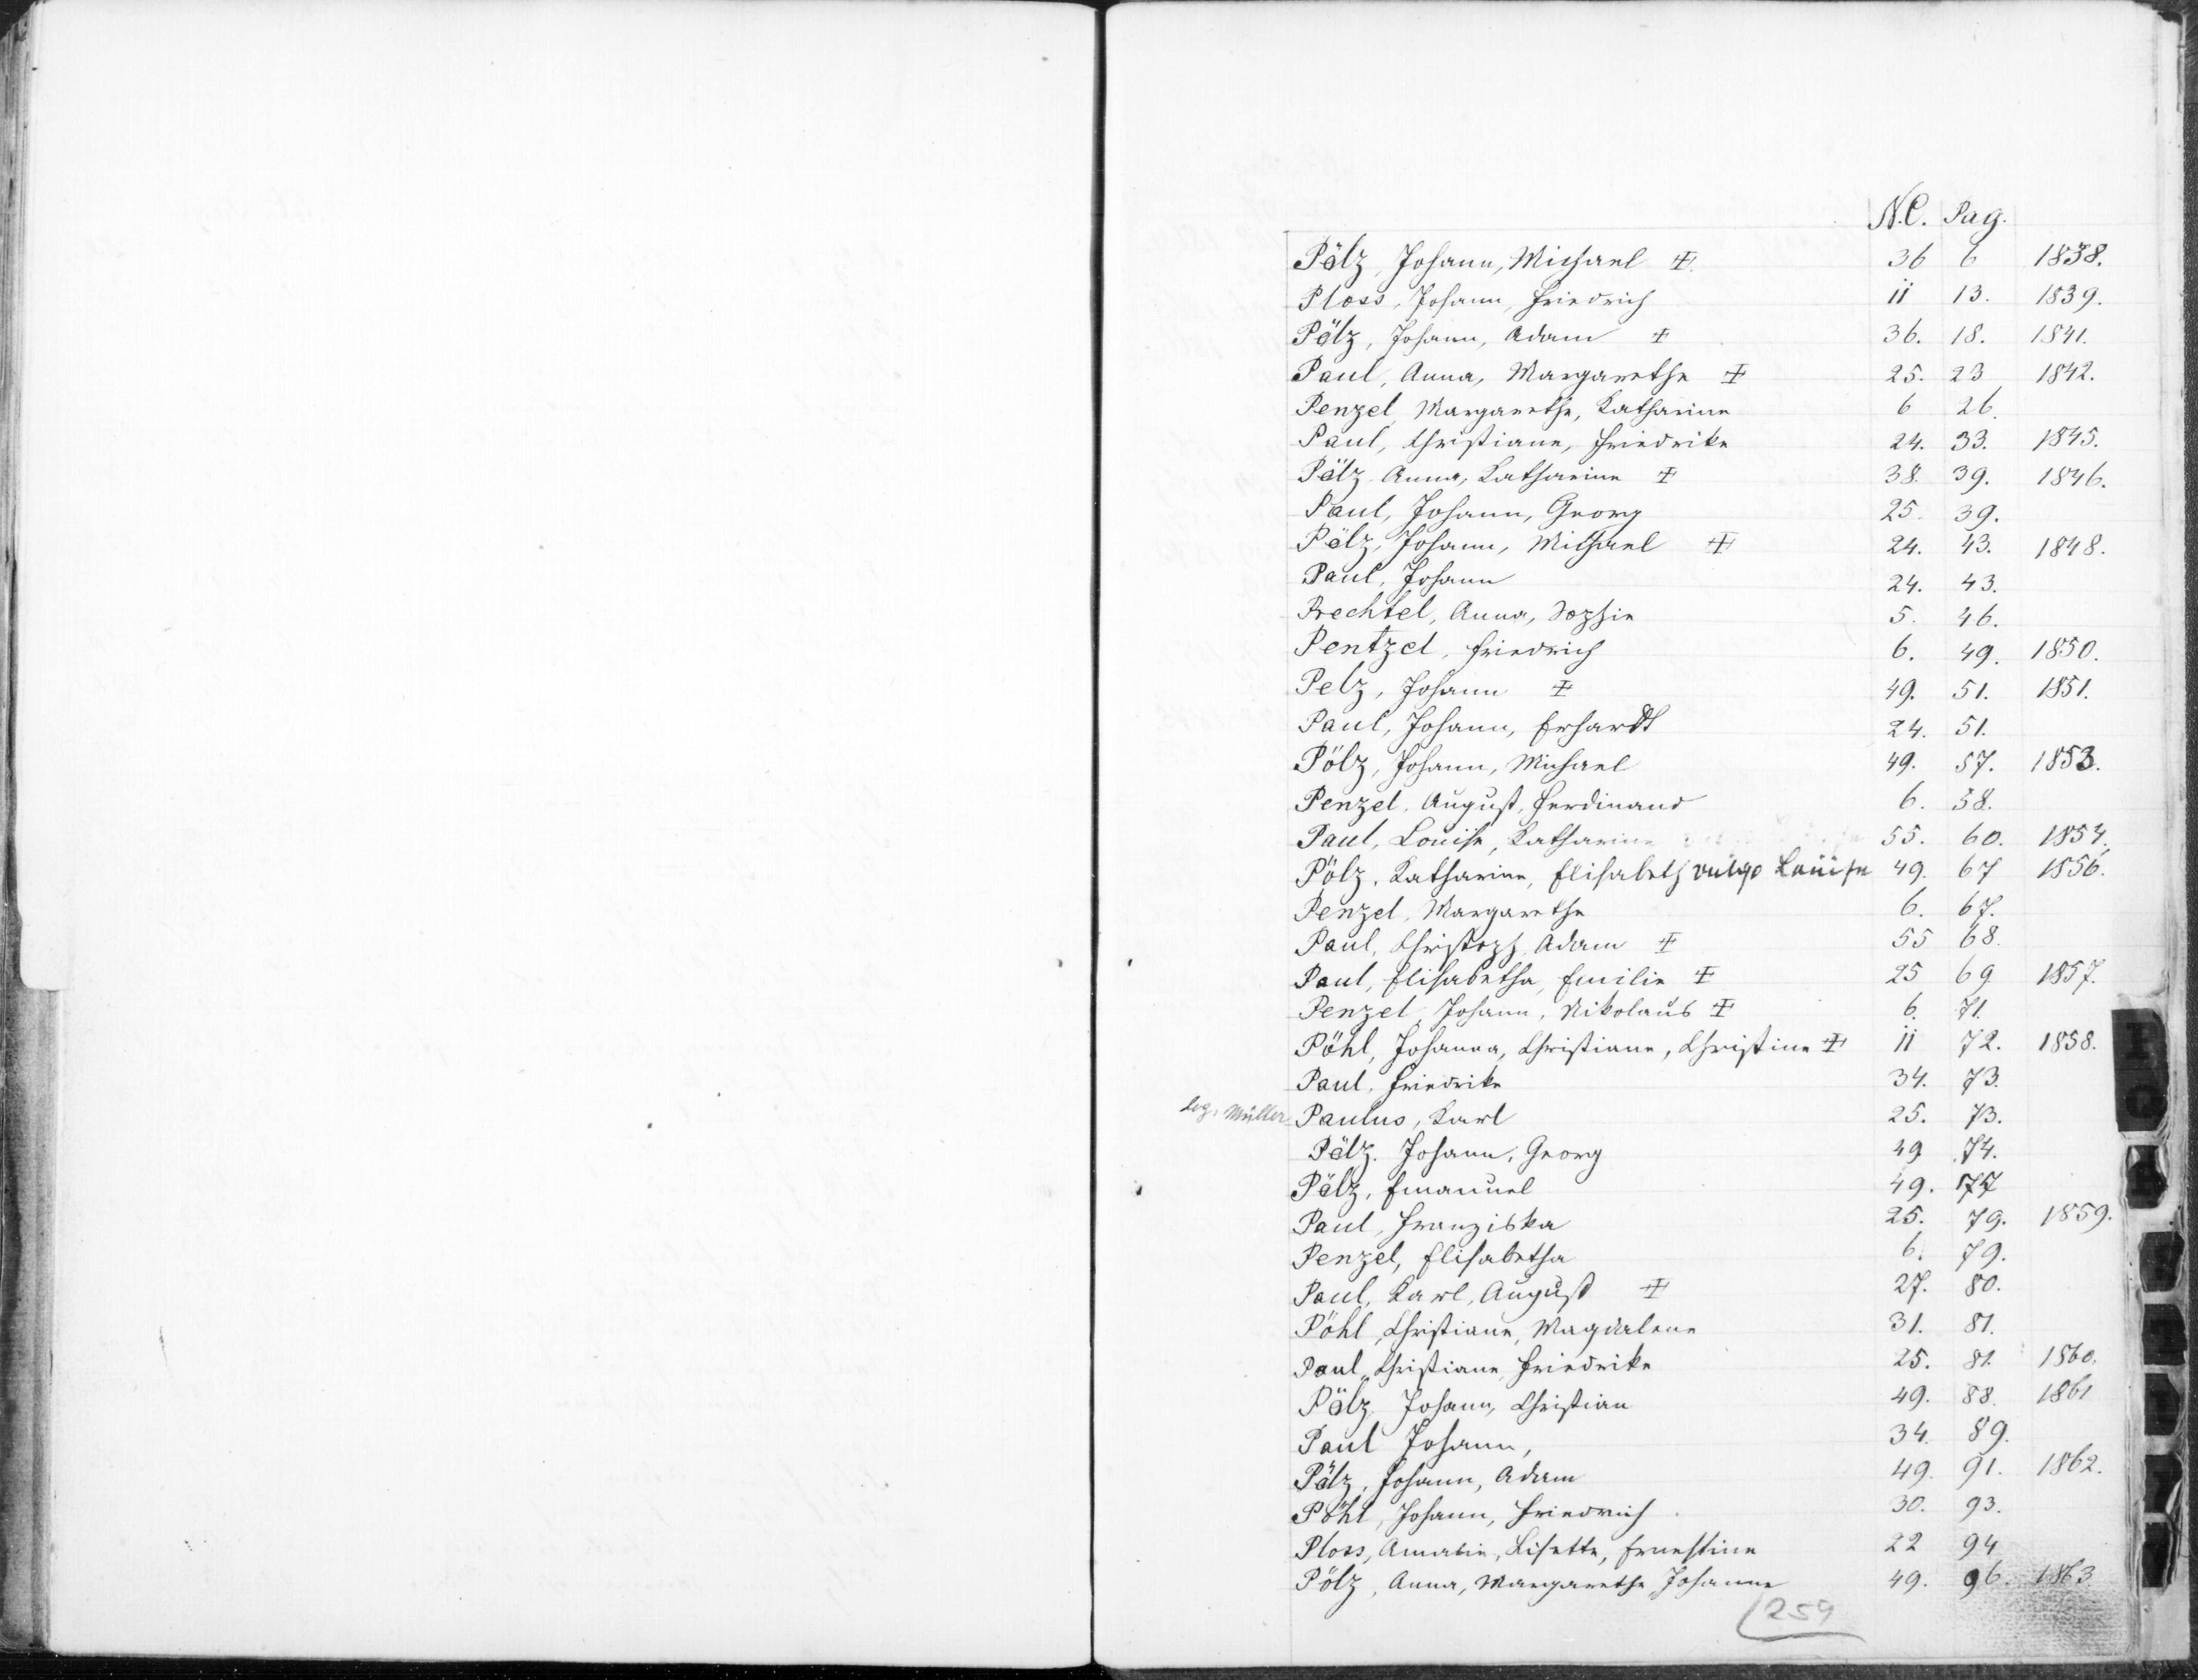 N.C. Pag.
Pölz, Johann, Michael ‡ 36 6 1838.
Ploss, Johann, Friedrich 11 13. 1839.
Pölz, Johann, Adam ‡ 36. 18. 1841.
Paul, Anna, Margarethe ‡ 25. 23 1842.
Penzel, Margarethe, Katharine 6 26.
Paul, Christiane, Friedrike 24. 33. 1845.
Pölz, Anna, Katharine ‡ 38. 39. 1846.
Paul, Johann, Georg 25. 39.
Pölz, Johann, Michael ‡ 24. 43. 1848.
Paul, Johann 24. 43.
Prechtel, Anna, Sophie 5. 46.
Pentzel, Friedrich 6. 49. 1850.
Pelz, Johann ‡ 49. 51. 1851.
Paul, Johann, Erhardt 24. 51.
Pölz, Johann, Michael 49. 57. 1853.
Penzel, August, Ferdinand 6. 58.
Paul, Louise, Katharine 55. 60. 1854.
Pölz, Katharine, Elisabeth vulgo Louise 49. 67 1856.
Penzel, Margarethe 6. 67.
Paul, Christoph, Adam ‡ 55 68.
Paul, Elisabetha, Emilie ‡ 25 69. 1857.
Penzel, Johann, Nikolaus ‡ 6. 71.
Pöhl, Johanna, Christiane, Christine ‡ 11 72. 1858.
Paul, Friedrike 34. 73.
leg. Müller Paulus, Karl 25. 73.
Pölz, Johann, Georg 49 74.
Pölz, Emanuel 49. 77
Paul, Franziska 25. 79. 1859.
Penzel, Elisabetha 6. 79.
Paul, Karl, August ‡ 27. 80.
Pöhl, Christiane, Magdalene 31. 81.
Paul, Christiane, Friedrike 25. 81. 1860.
Pölz, Johann, Christian 49. 88. 1861
Paul Johann, 34. 89.
Pölz, Johann, Adam 49. 91. 1862.
Pöhl, Johann, Friedrich 30. 93.
Ploss, Amalie, Lisette, Ernestine 22 94
Pölz, Anna, Margarethe, Johanne 49. 96. 1863
259